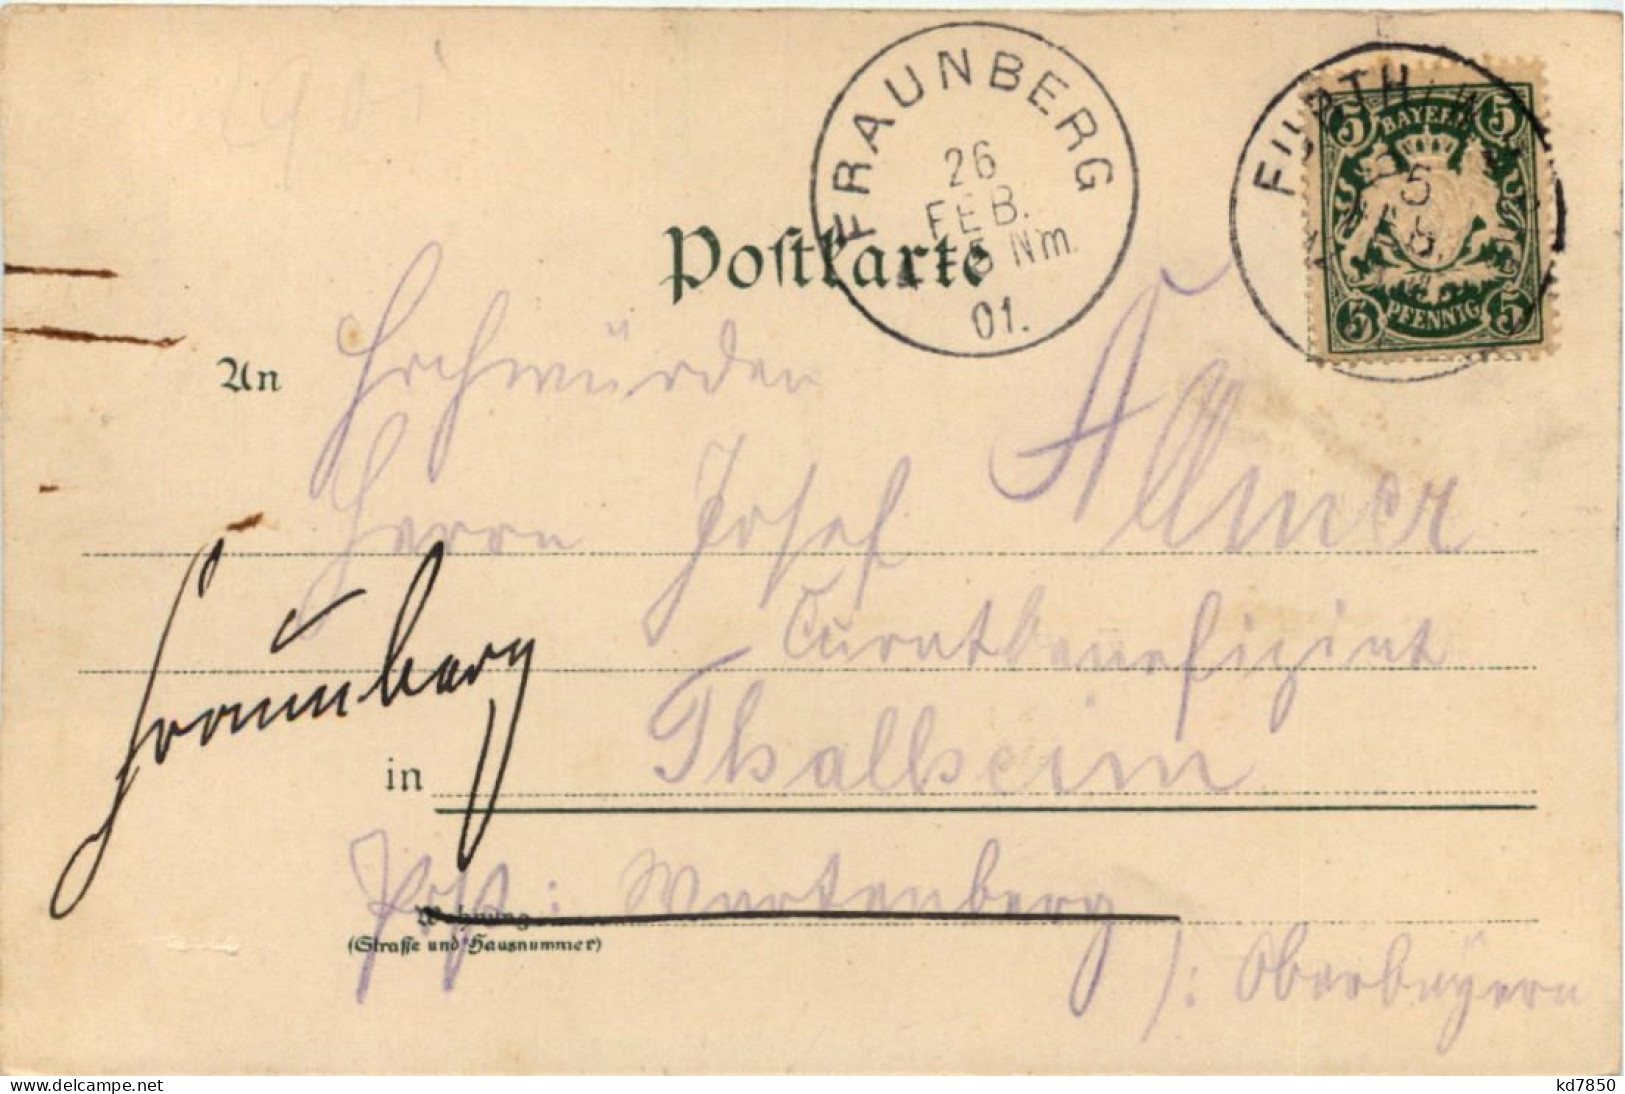 1901
FRAUNBERG
26
FEB.
5 Nm.
01.
FURTH
5
BAYERN
5
5
PFENNIG
5
Postkarte
An
Hochwürden
Herrn Josef Allmer
Curatbenefiziat
Fraunberg
in
Thalheim
Post: Wartenberg
Wohnung
(Straße und Hausnummer)
): Oberbayern
www.delcampe.net
kd7850